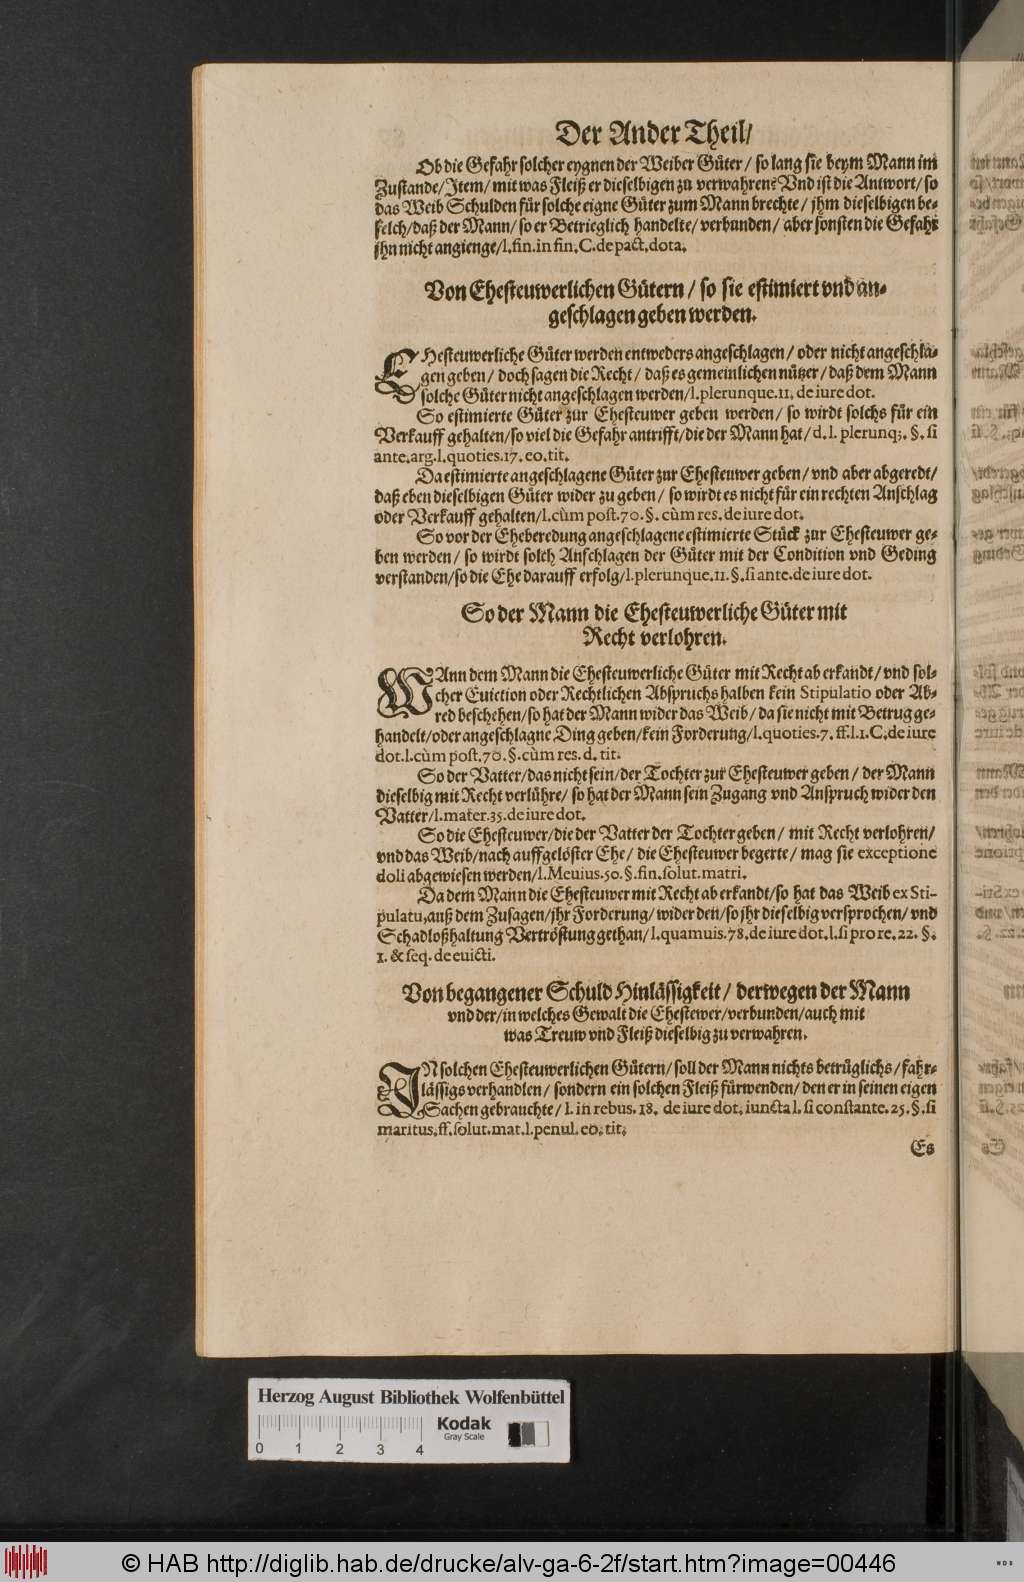 Der Ander Theil/
Ob die Gefahr solcher eygnen der Weiber Güter / so lang sie beym Mann im
Zustande/Item/ mit was Fleiß er dieselbigen zu verwahren? Vnd ist die Antwort/ so
das Weib Schulden für solche eigne Güter zum Mann brechte/ jhm dieselbigen be-
felch/daß der Mann/ so er Betrieglich handelte/ verbunden / aber sonsten die Gefahr
jhn nicht angienge/l.fin.in fin.C.de pact.dota.
Von Ehesteuwerlichen Gütern / so sie estimiert vnd an-
geschlagen geben werden.
EHesteuwerliche Güter werden entweders angeschlagen / oder nicht angeschla-
gen geben/ doch sagen die Recht/ daß es gemeinlichen nützer/ daß dem Mann
solche Güter nicht angeschlagen werden/l.plerunque.11. de iure dot.
So estimierte Güter zur Ehesteuwer geben werden/ so wirdt solchs für ein
Verkauff gehalten/so viel die Gefahr antrifft/die der Mann hat/ d.l. plerunq;. §. si
ante.arg.l.quoties.17. eo.tit.
Da estimierte angeschlagene Güter zur Ehesteuwer geben/ vnd aber abgeredt/
daß eben dieselbigen Güter wider zu geben/ so wirdt es nicht für ein rechten Anschlag
oder Verkauff gehalten/l.cùm post.70.§. cùm res.de iure dot.
So vor der Eheberedung angeschlagene estimierte Stück zur Ehesteuwer ge-
ben werden/ so wirdt solch Anschlagen der Güter mit der Condition vnd Geding
verstanden/so die Ehe darauff erfolg/l.plerunque.11.§.si ante.de iure dot.
So der Mann die Ehesteuwerliche Güter mit
Recht verlohren.
WAnn dem Mann die Ehesteuwerliche Güter mit Recht ab erkandt/ vnd sol-
cher Euiction oder Rechtlichen Abspruchs halben kein Stipulatio oder Ab-
red beschehen/so hat der Mann wider das Weib/ da sie nicht mit Betrug ge-
handelt/oder angeschlagne Ding geben/kein Forderung/l.quoties.7. ff.l.1.C.de iure
dot.l.cùm post.70.§.cùm res.d. tit.
So der Vatter/das nicht sein/der Tochter zur Ehesteuwer geben/ der Mann
dieselbig mit Recht verlühre/ so hat der Mann sein Zugang vnd Anspruch wider den
Vatter/l.mater.35.de iure dot.
So die Ehesteuwer/die der Vatter der Tochter geben/ mit Recht verlohren/
vnd das Weib/nach auffgelöster Ehe/ die Ehesteuwer begerte/ mag sie exceptione
doli abgewiesen werden/l.Meuius.50.§.fin.solut.matri.
Da dem Mann die Ehesteuwer mit Recht ab erkandt/so hat das Weib ex Sti-
pulatu,auß dem Zusagen/jhr Forderung/ wider den/so jhr dieselbig versprochen/ vnd
Schadloßhaltung Vertröstung gethan/l.quamuis.78.de iure dot.l.si pro re.22. §.
1. & seq. de euicti.
Von begangener Schuld Hinlässigkeit/ derwegen der Mann
vnd der/in welches Gewalt die Ehestewer/verbunden/auch mit
was Treuw vnd Fleiß dieselbig zu verwahren.
IN solchen Ehesteuwerlichen Gütern/soll der Mann nichts betrüglichs/fahr-
lässigs verhandlen/ sondern ein solchen Fleiß fürwenden/den er in seinen eigen
Sachen gebrauchte/ l. in rebus. 18. de iure dot. iuncta l. si constante. 25. §. si
maritus.ff.solut.mat.l.penul.eo.tit.
Es
Herzog August Bibliothek Wolfenbüttel
Kodak
Gray Scale
0 1 2 3 4
© HAB http://diglib.hab.de/drucke/alv-ga-6-2f/start.htm?image=00446
WDB